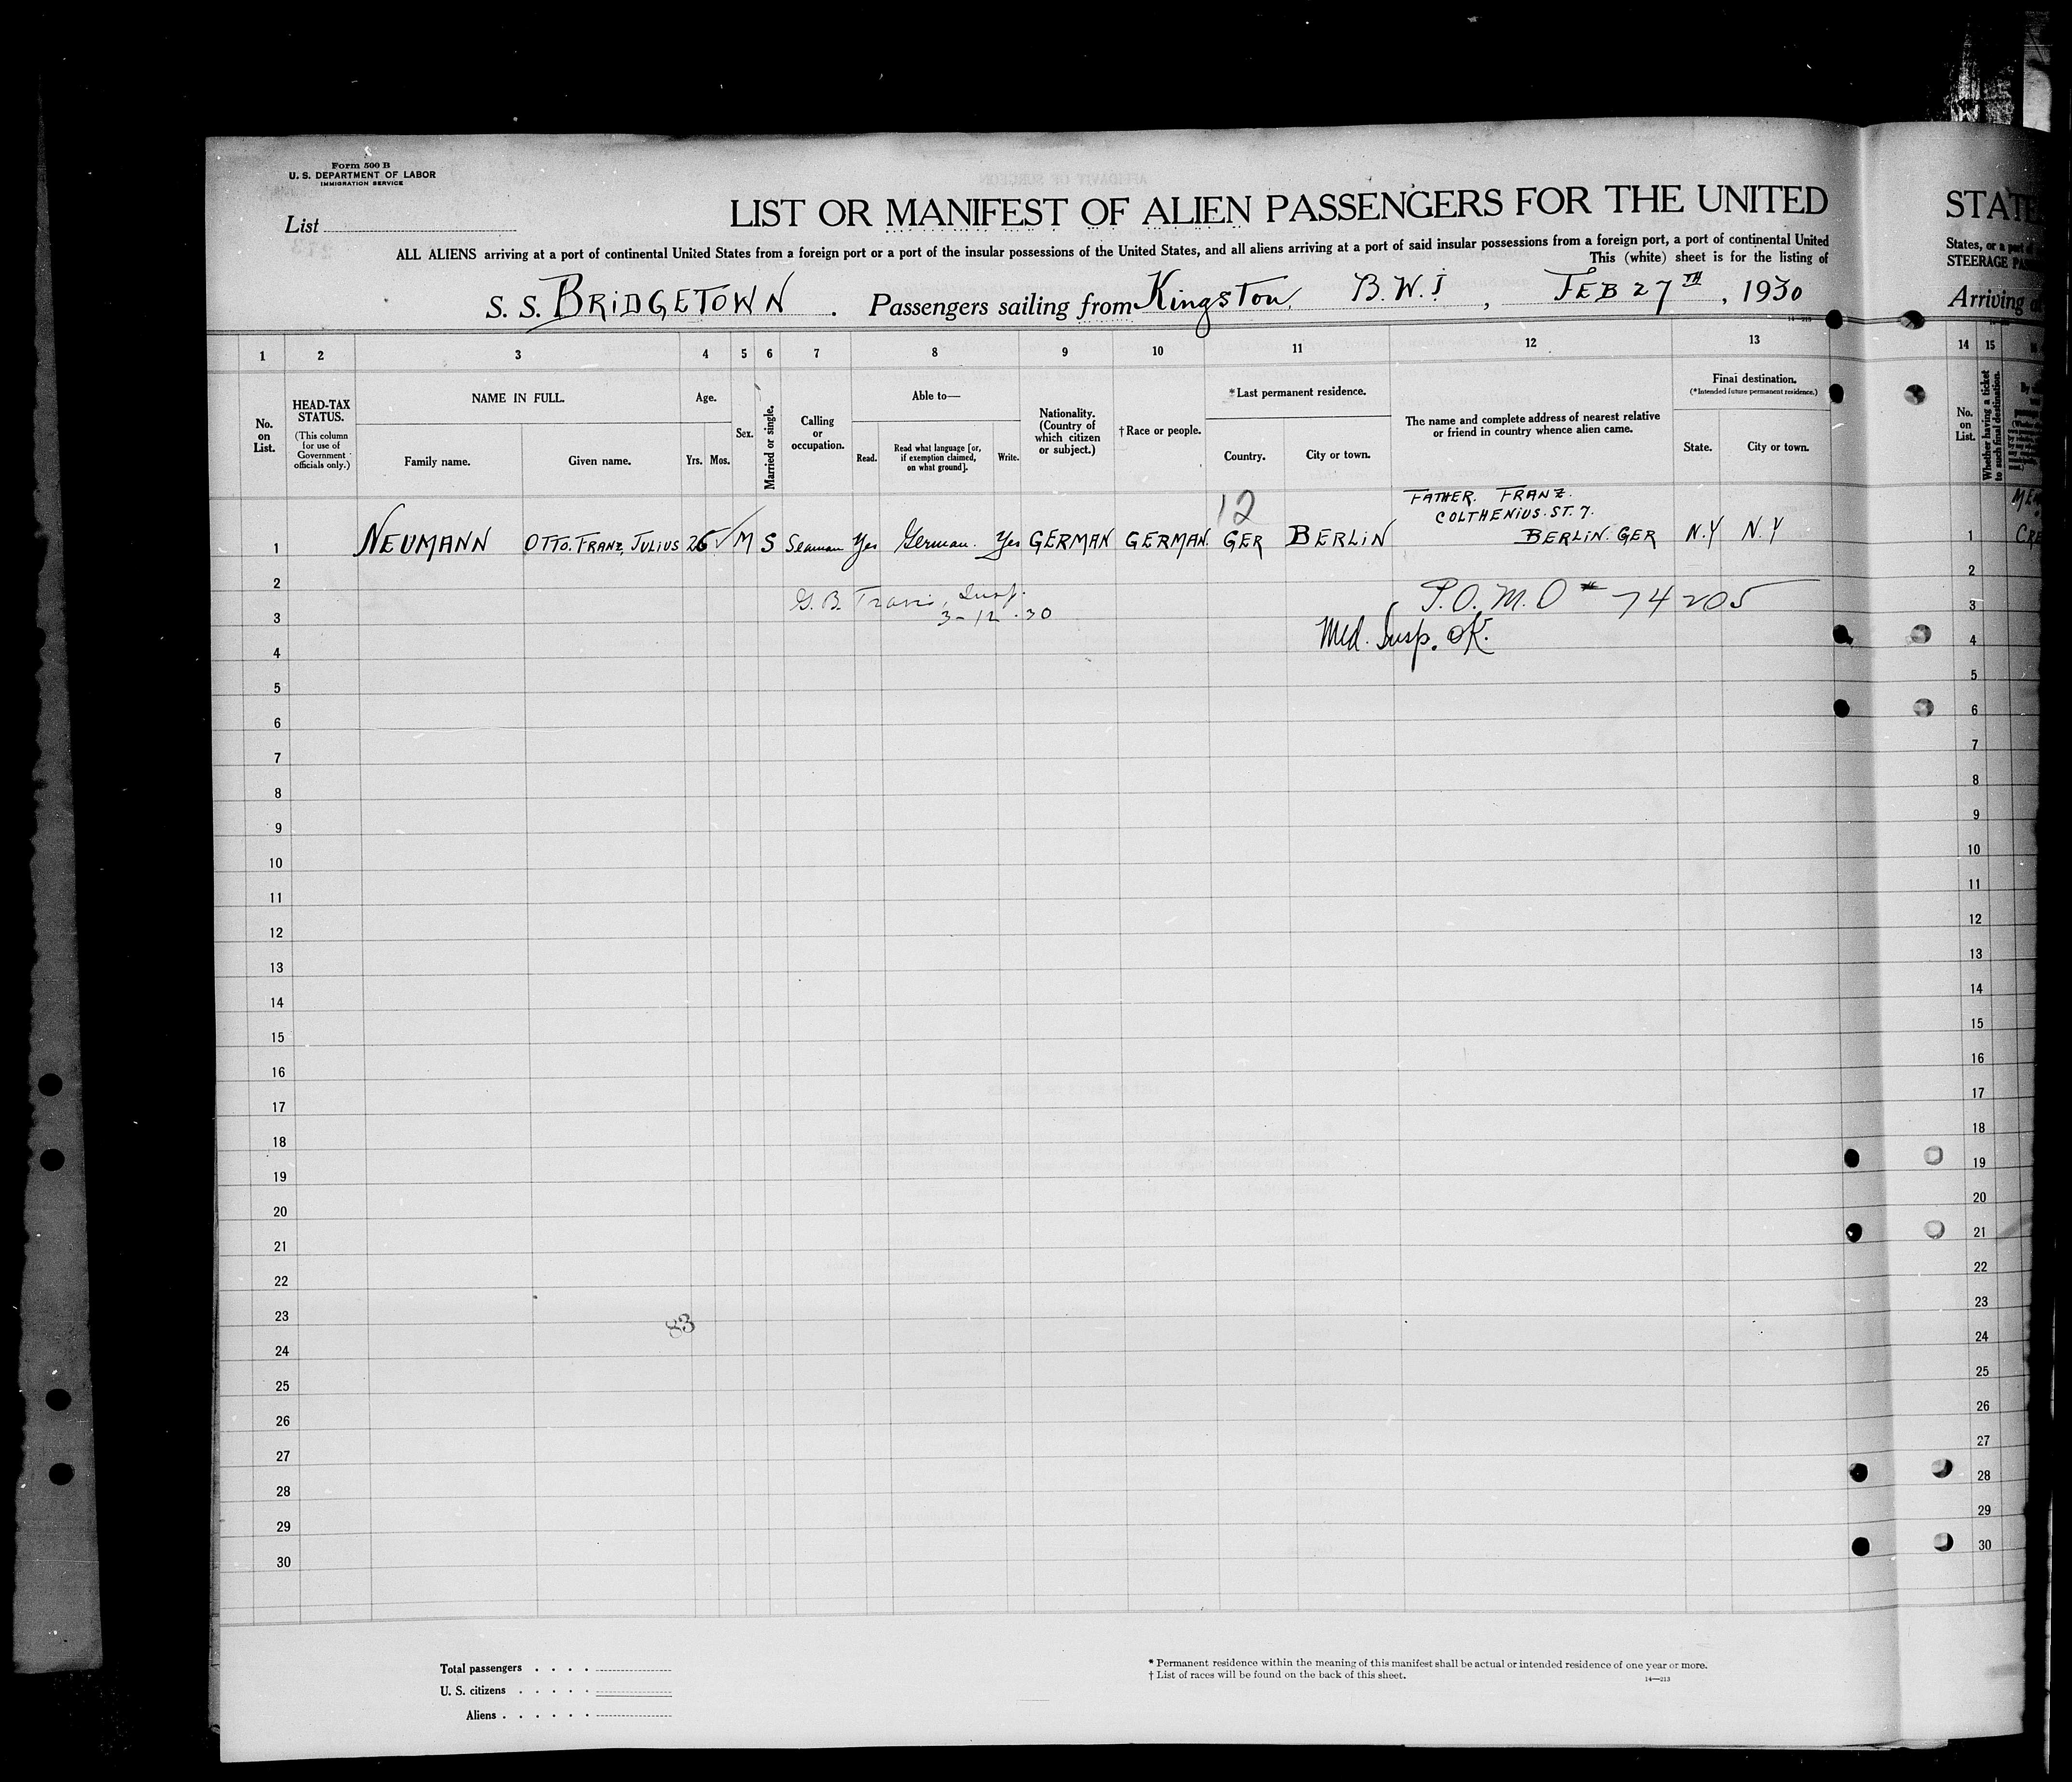 Form 500 B
U. S. DEPARTMENT OF LABOR
IMMIGRATION SERVICE
List
LIST OR MANIFEST OF ALIEN PASSENGERS FOR THE UNITED
ALL ALIENS arriving at a port of continental United States from a foreign port or a port of the insular possessions of the United States, and all aliens arriving at a port of said insular possessions from a foreign port, a port of continental United
This (white) sheet is for the listing of
S. S. BRIDGETOWN . Passengers sailing from Kingston, B.W.I , FEB 27TH , 1930
14—213
1 2 3 4 5 6 7 8 9 10 11 12 13
No. on List.
HEAD-TAX STATUS.
(This column for use of Government officials only.)
NAME IN FULL.
Family name.
Given name.
Age.
Yrs. Mos.
Sex.
Married or single.
Calling or occupation.
Able to—
Read.
Read what language [or, if exemption claimed, on what ground].
Write.
Nationality. (Country of which citizen or subject.)
† Race or people.
* Last permanent residence.
Country.
City or town.
The name and complete address of nearest relative or friend in country whence alien came.
Final destination.
(*Intended future permanent residence.)
State.
City or town.
12
FATHER. FRANZ.
COLTHENIUS. ST. 7.
1 NEUMANN OTTO. FRANZ, JULIUS 26 ✓ M S Seaman Yes German. Yes GERMAN GERMAN. GER BERLIN BERLIN. GER N.Y N.Y
2
G. B. Travis, Insp. P.O.M.O # 74205
3
3-12-30
Med. Insp. OK.
4
5
6
7
8
9
10
11
12
13
14
15
16
17
18
19
20
21
22
23
83
24
25
26
27
28
29
30
Total passengers . . . .
U. S. citizens . . . . .
Aliens . . . . . .
* Permanent residence within the meaning of this manifest shall be actual or intended residence of one year or more.
† List of races will be found on the back of this sheet.
14—213
STATE
States, or a port of
STEERAGE PA
Arriving
14 15
No. on List.
Whether having a ticket to such final destination.
By
1
CRE
2
3
4
5
6
7
8
9
10
11
12
13
14
15
16
17
18
19
20
21
22
23
24
25
26
27
28
29
30